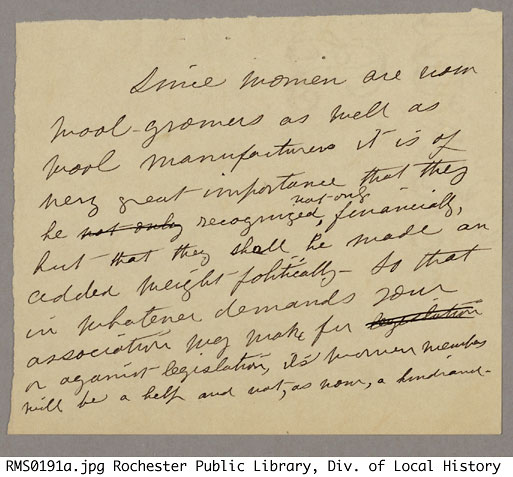 Since women are now
wool-growers as well as
wool manufacturers it is of
very great importance that they
be not only recognized not only financially,
but that they shall be made an
added weight politically - So that
in whatever demands your
association may make for legislation
or against legislation, its women members
will be a help and not, as now, a hindrance-
RMS0191a.jpg Rochester Public Library, Div. of Local History